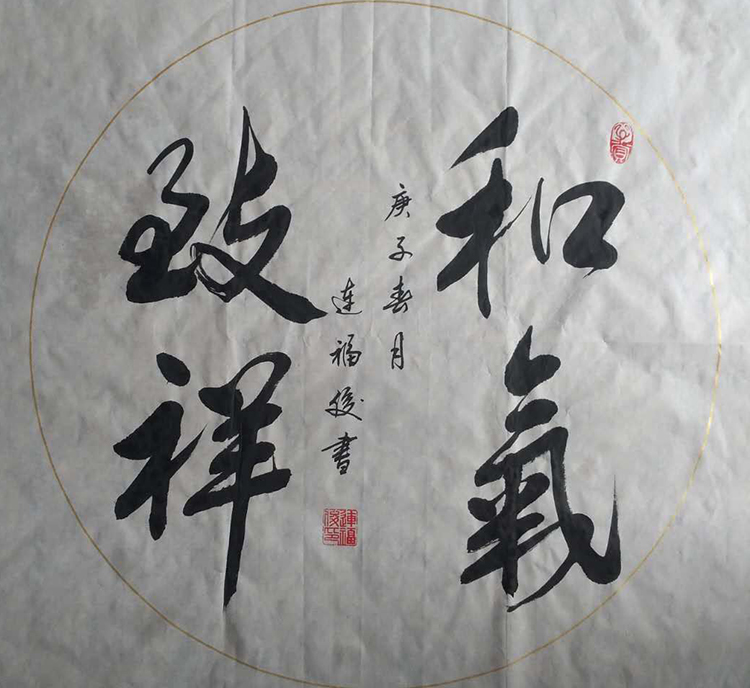 和氣
致祥
庚子春月
連福俊書